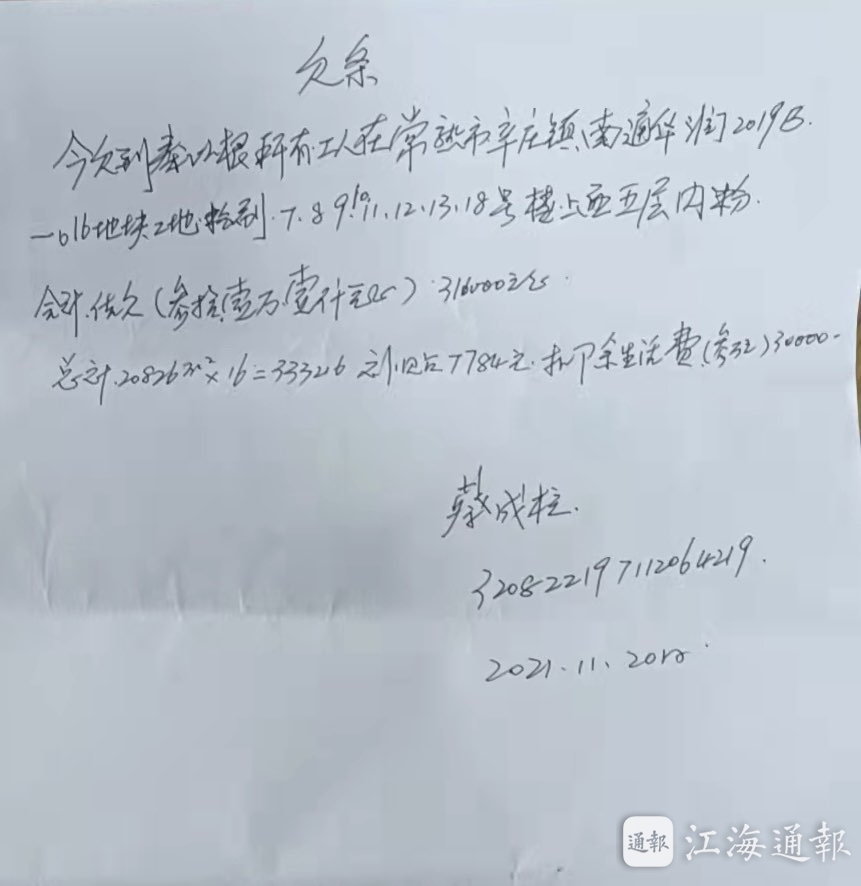 欠条
今欠到秦以根所有工人在常熟市辛庄镇南通华润2019B
-016地块工地粉刷.7.8 9.10.11.12.13.18号楼上西五层内粉.
合计.佶欠(参拾壹万.壹仟元) 311000元
总计.20826m²×16=333216 7784元.扣下余生活费(参万)30000-
蔡成柱.
320822197112064219.
2021.11.20
通報 江海通報